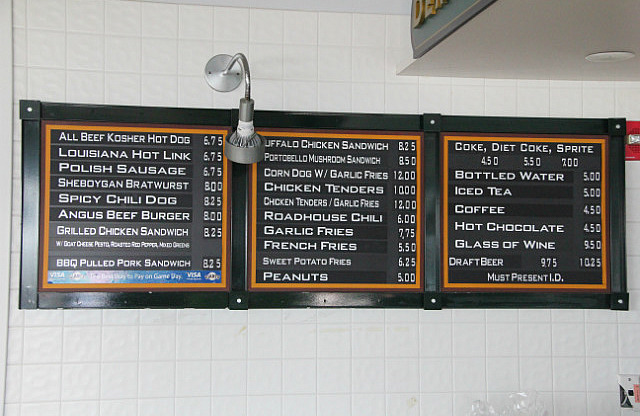 All Beef Kosher Hot Dog 6.75
Louisiana Hot Link 6.75
Polish Sausage 6.75
Sheboygan Bratwurst 8.00
Spicy Chili Dog 8.25
Angus Beef Burger 8.00
Grilled Chicken Sandwich 8.25
w/ Goat Cheese Pesto, Roasted Red Pepper, Mixed Greens
BBQ Pulled Pork Sandwich 8.25
VISA The Best Way to Pay on Game Day. VISA
uffalo Chicken Sandwich 8.25
Portobello Mushroom Sandwich 8.50
Corn Dog w/ Garlic Fries 12.00
Chicken Tenders 10.00
Chicken Tenders / Garlic Fries 12.00
Roadhouse Chili 6.00
Garlic Fries 7.75
French Fries 5.50
Sweet Potato Fries 6.25
Peanuts 5.00
Coke, Diet Coke, Sprite
4.50 5.50 7.00
Bottled Water 5.00
Iced Tea 5.00
Coffee 4.50
Hot Chocolate 4.50
Glass of Wine 9.50
Draft Beer 9.75 10.25
Must Present I.D.